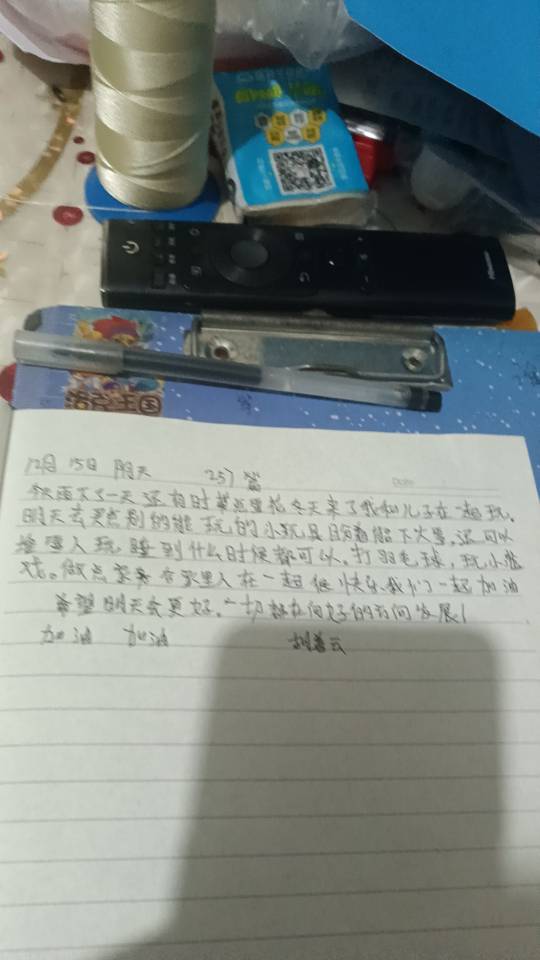 洛克王国
Date
12月 15日 阴天 257 篇
雨下了一天 还有时 雪花冬天来了我和儿子在一起玩.
明天去买点别的能玩的小玩具 盼着能下大雪,还可以
堆雪人玩 睡到什么时候都可以.打羽毛球,玩小游
戏。做点菜 家里人在一起很快乐 我们一起加油
希望明天会更好.一切都在向好的方向发展!
加油 加油 云